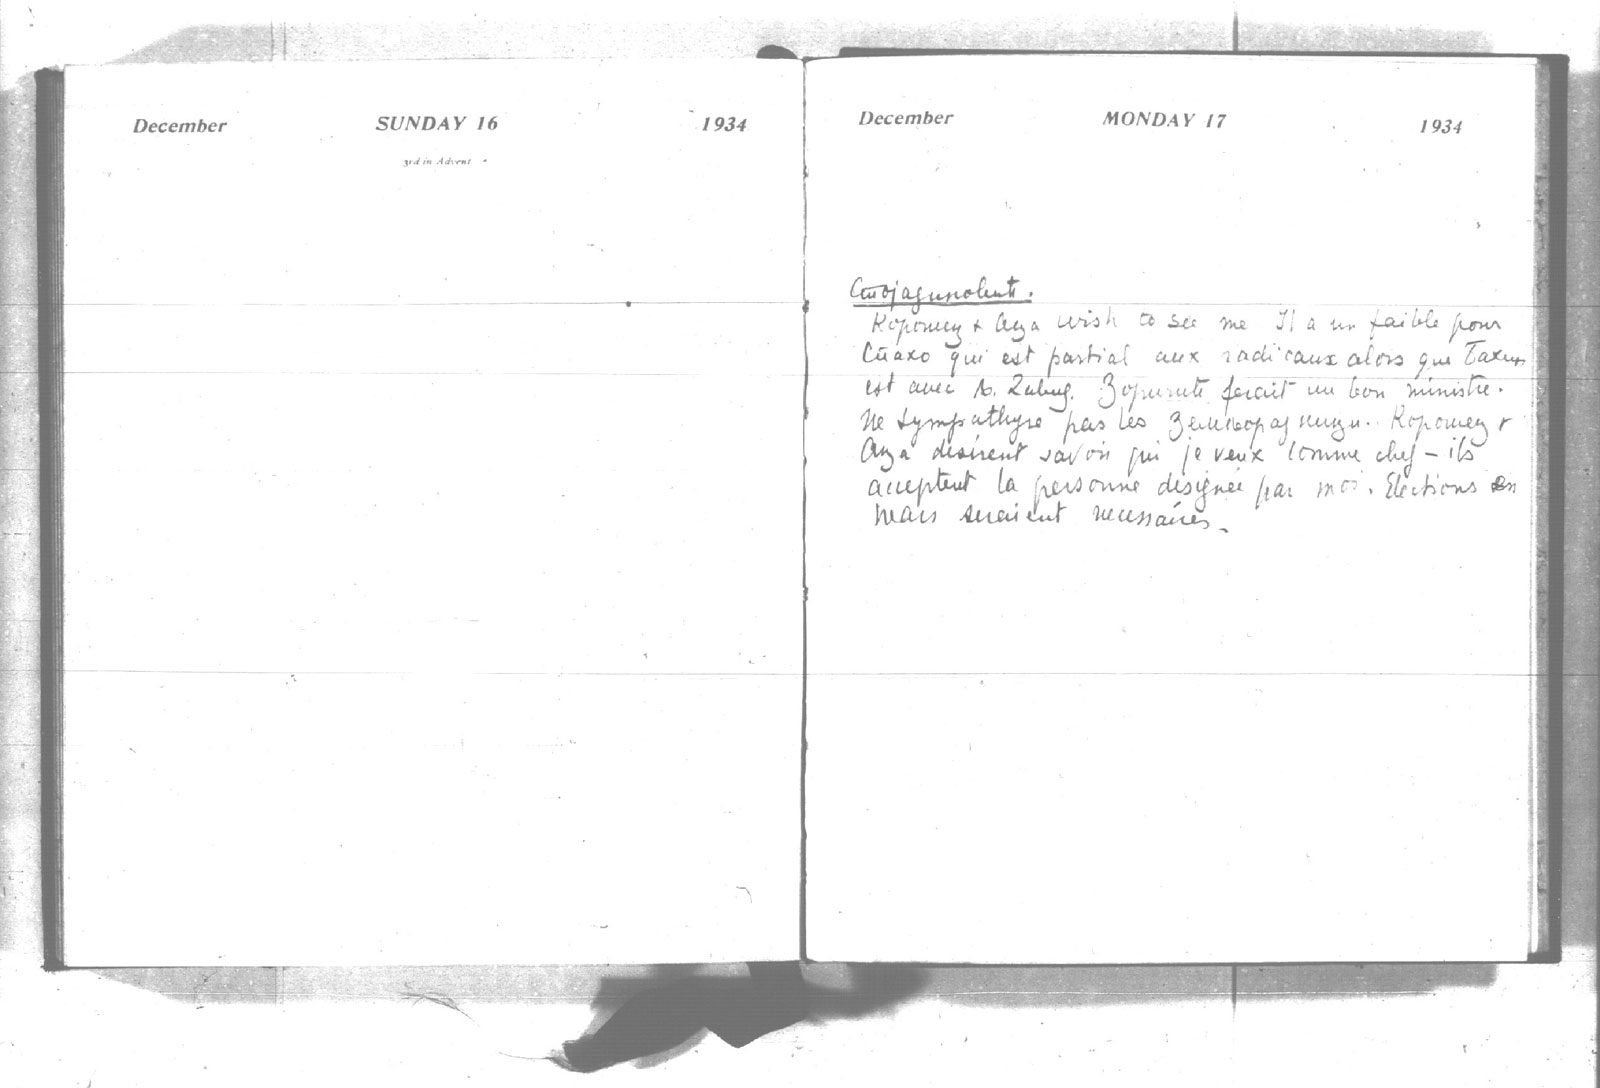 December SUNDAY 16 1934
3rd in Advent
December MONDAY 17 1934
Стојадиновић.
Корошец + Аца wish to see me Il a un faible pour
Спахо qui est partial aux radicaux alors que
est avec ferait un bon ministre.
Ne sympathise pas les Корошец +
Аца désirent savoir qui je veux comme chef – ils
acceptent la personne designée par moi. Elections en
mars seraient necessaires.